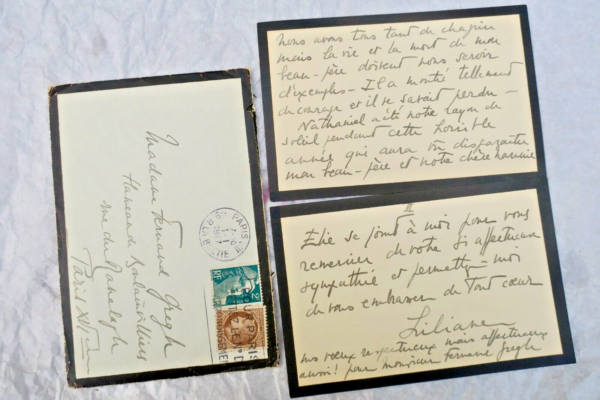 Madame Fernand Gregh
Hameau de Boulainvilliers
rue du Ranelagh
Paris XVI
PARIS
RF
2
PARIS
nous avons tous tant de chagrin
mais la vie et la mort de mon
beau-père doivent nous servir
d'exemples - Il a montré tellement
de courage et il se savait perdu -
Nathaniel a été notre rayon de
soleil pendant cette horrible
année qui aura vu disparaître
mon beau-père et notre chère
II
Elie se joint à moi pour vous
remercier de votre si affectueuse
sympathie et permettez-moi
de vous embrasser de tout cœur
Liliane
nos vœux respectueux mais affectueux
aussi! pour monsieur Fernand Gregh